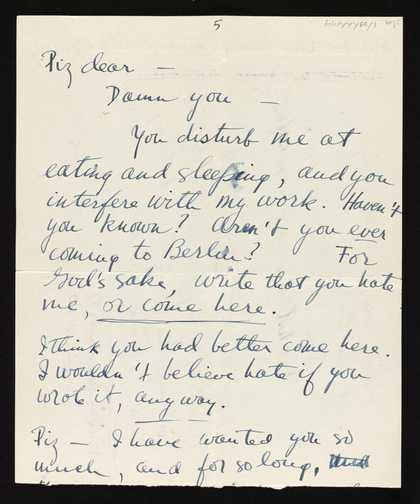 5
Piz dear —
Damn you —
You disturb me at
eating and sleeping, and you
interfere with my work. Haven't
you known? Aren't you ever
coming to Berlin? For
God's sake, write that you hate
me, or come here.
I think you had better come here.
I wouldn't believe hate if you
wrote it, anyway.
Piz — I have wanted you so
much, and for so long,